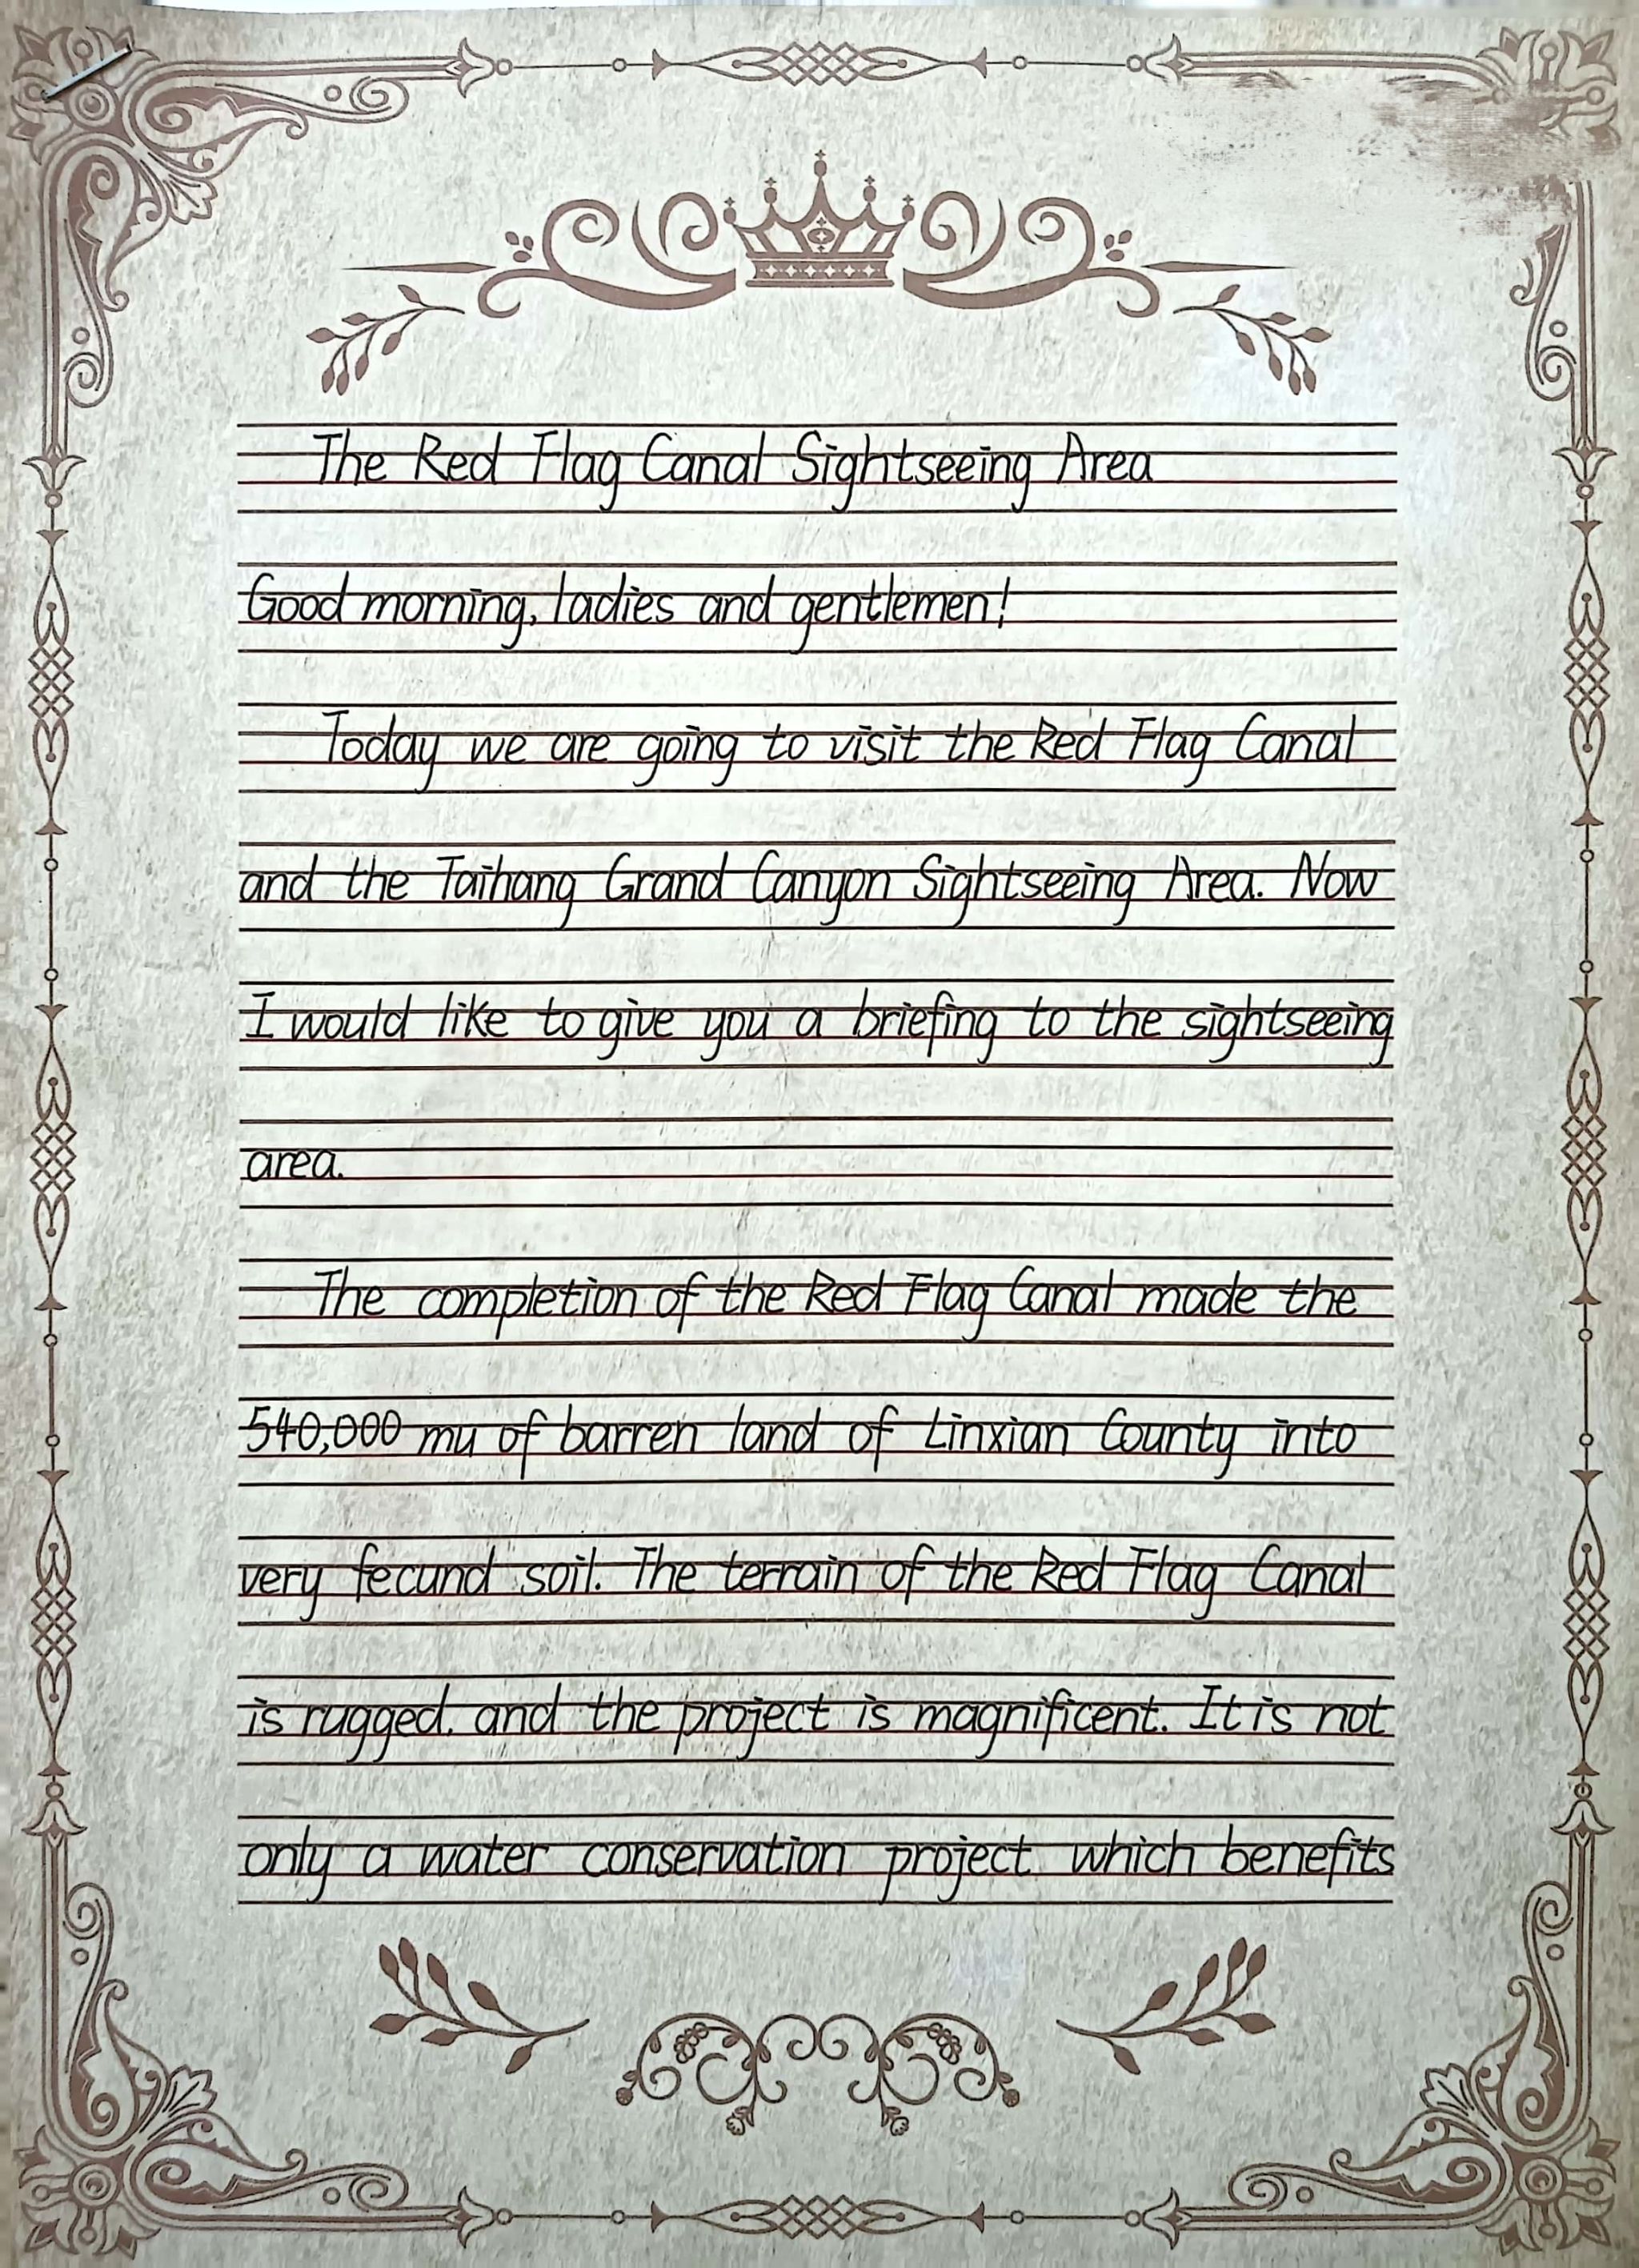 The Red Flag Canal Sightseeing Area
Good morning, ladies and gentlemen!
Today we are going to visit the Red Flag Canal
and the Taihang Grand Canyon Sightseeing Area. Now
I would like to give you a briefing to the sightseeing
area.
The completion of the Red Flag Canal made the
540,000 mu of barren land of Linxian County into
very fecund soil. The terrain of the Red Flag Canal
is rugged. and the project is magnificent. It is not
only a water conservation project which benefits